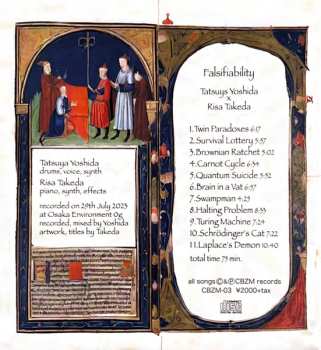 Tatsuya Yoshida
drums, voice, synth
Risa Takeda
piano, synth, effects
recorded on 29th July 2023
at Osaka Environment 0g
recorded, mixed by Yoshida
artwork, titles by Takeda
Falsifiability
Tatsuya Yoshida
×
Risa Takeda
1.Twin Paradoxes 6:17
2.Survival Lottery 5:57
3.Brownian Ratchet 5:02
4.Carnot Cycle 6:34
5.Quantum Suicide 3:52
6.Brain in a Vat 6:57
7.Swampman 4:23
8.Halting Problem 8:33
9.Turing Machine 7:24
10.Schrödinger's Cat 7:22
11.Laplace's Demon 10:40
total time 73 min.
all songs©&℗CBZM records
CBZM-03 ¥2000+tax